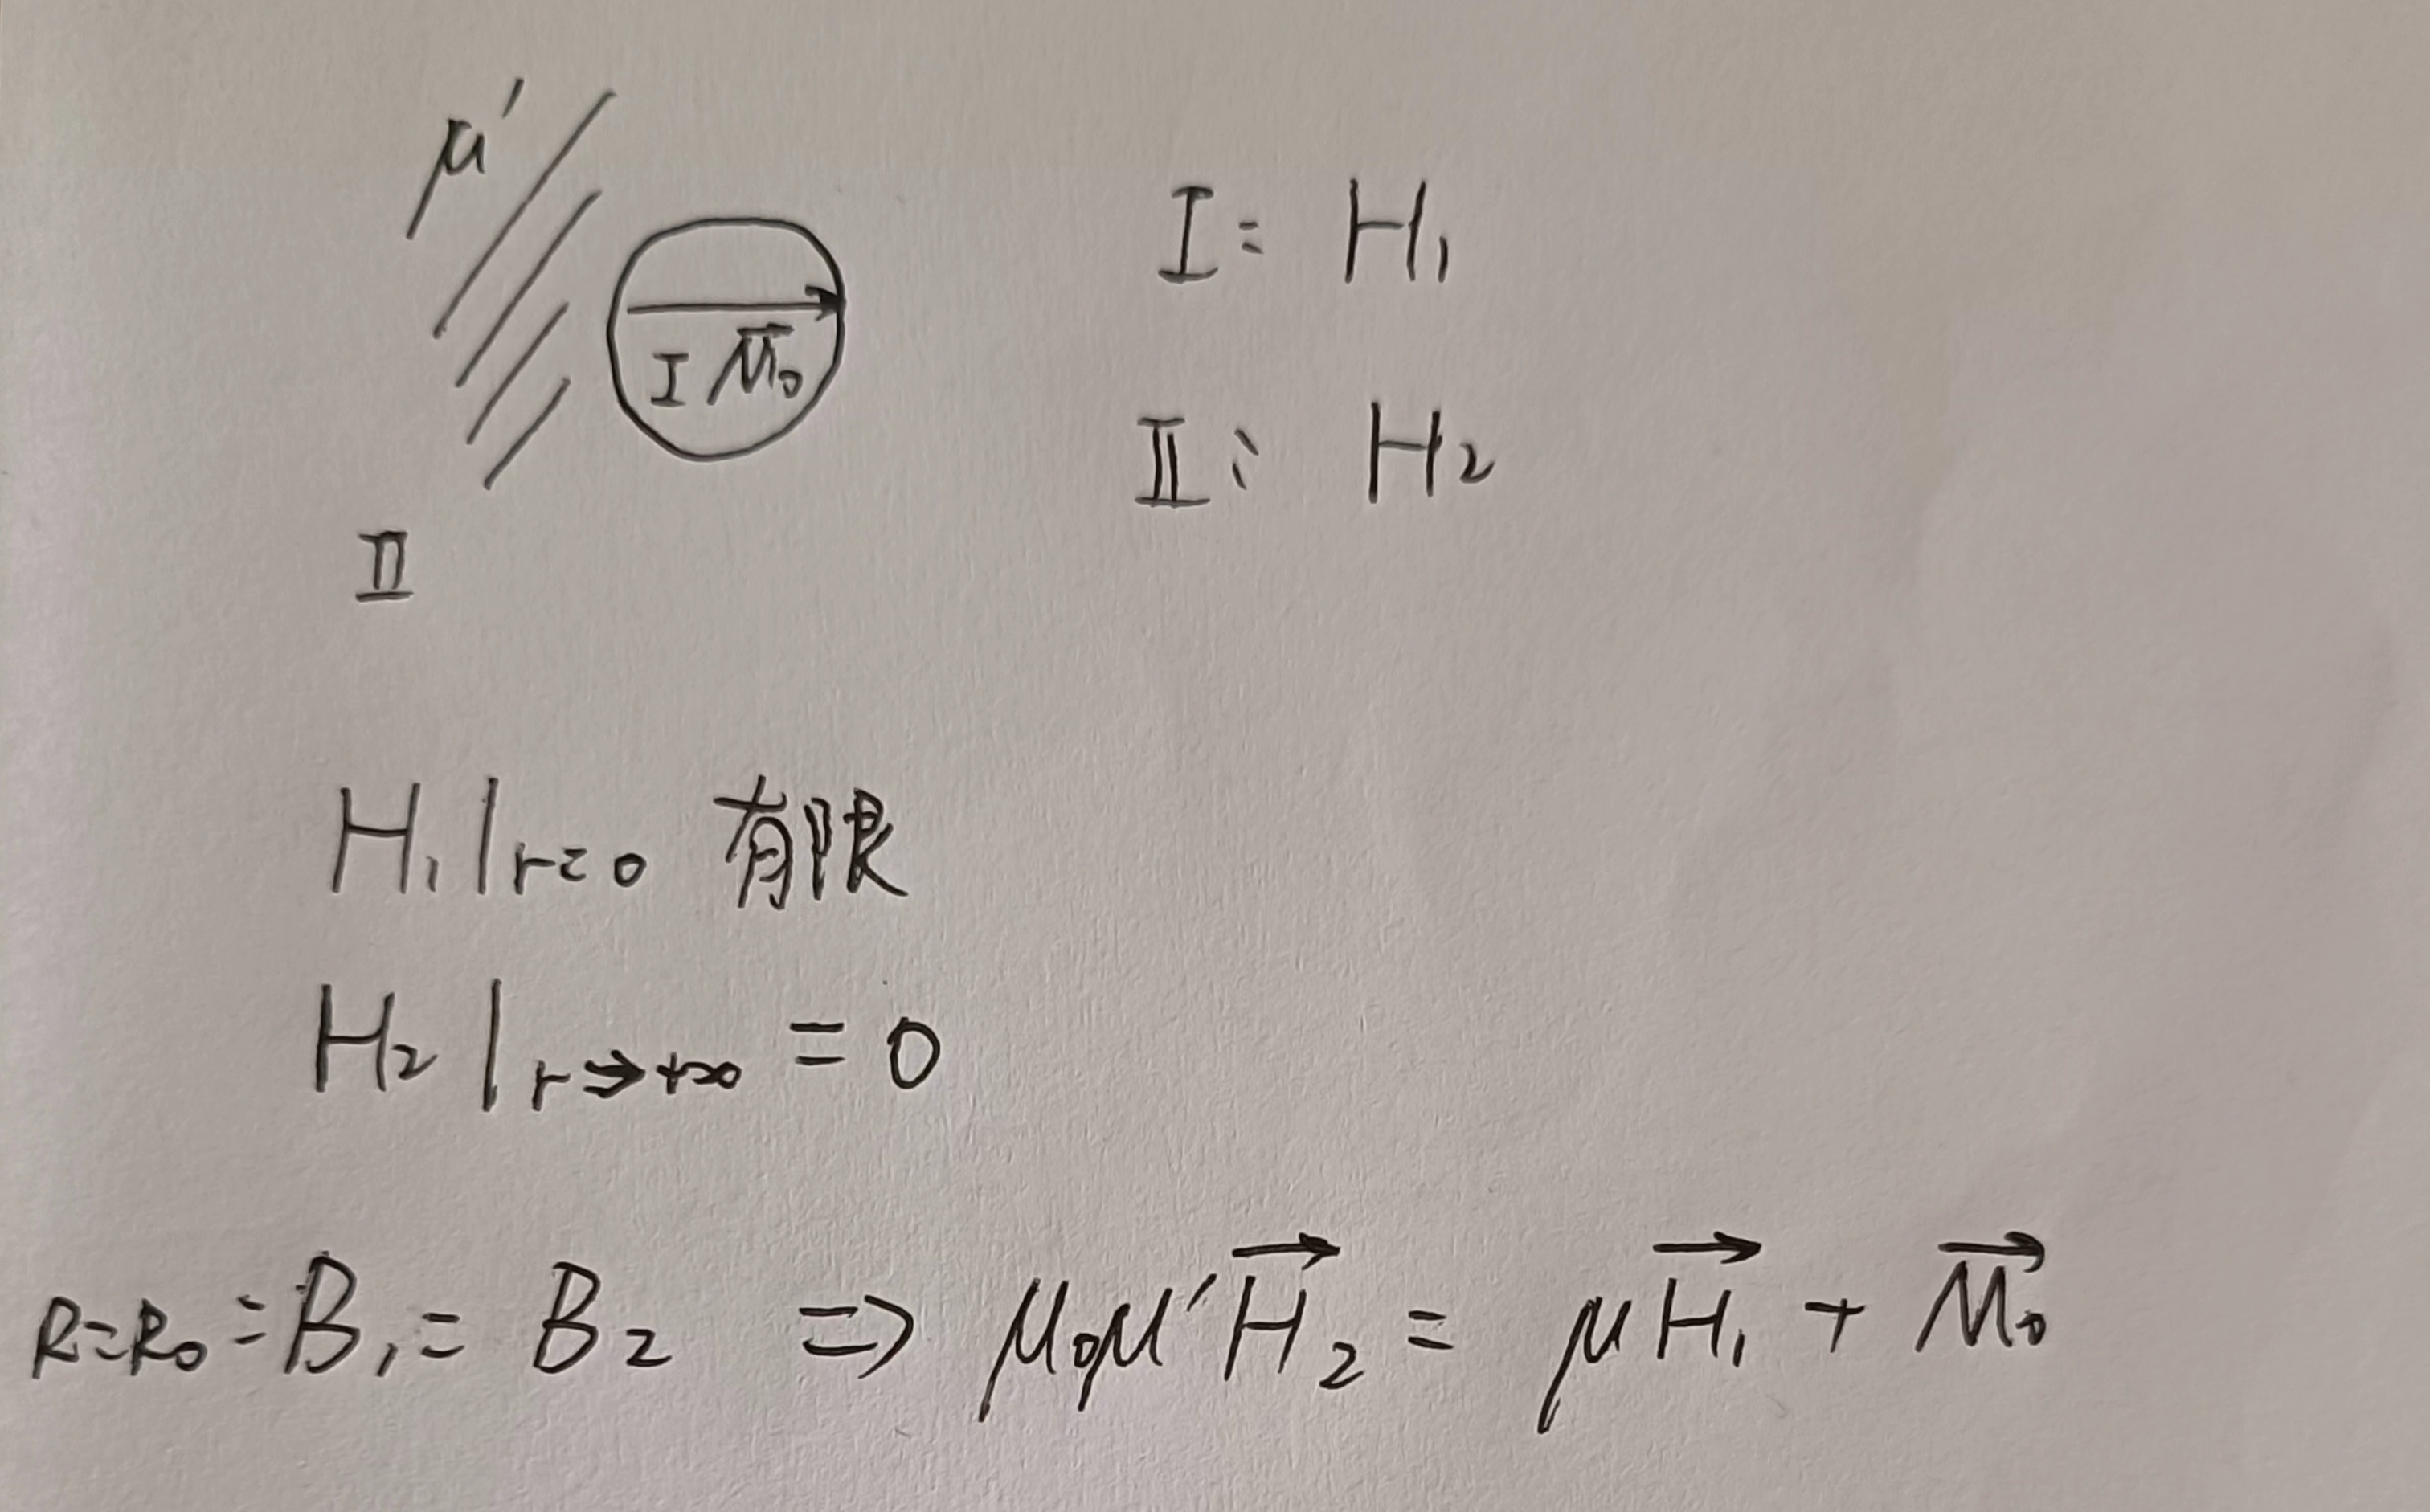 μ'
I M⃗₀
II
I: H₁
II: H₂
H₁|r=0 有限
H₂|r→+∞ = 0
R=R₀: B₁ = B₂ ⇒ μ₀μ'H⃗₂ = μH⃗₁ + M⃗₀